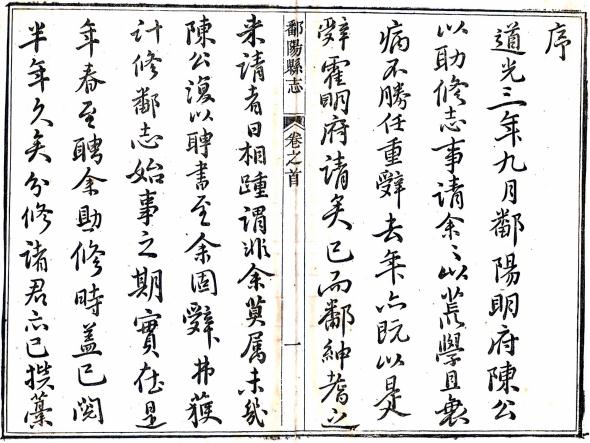 序
道光三年九月鄱陽明府陳公
以助修志事請余余以荒學且衰
病不勝任重辭去年亦既以是
辭霍明府請矣已而鄱紳耆之
鄱陽縣志 卷之首 一
來請者日相踵謂非余莫屬未幾
陳公復以聘書至余固辭弗獲
計修鄱志始事之期實在是
年春至聘余助修時蓋已閱
半年久矣分修諸君亦已撰藁